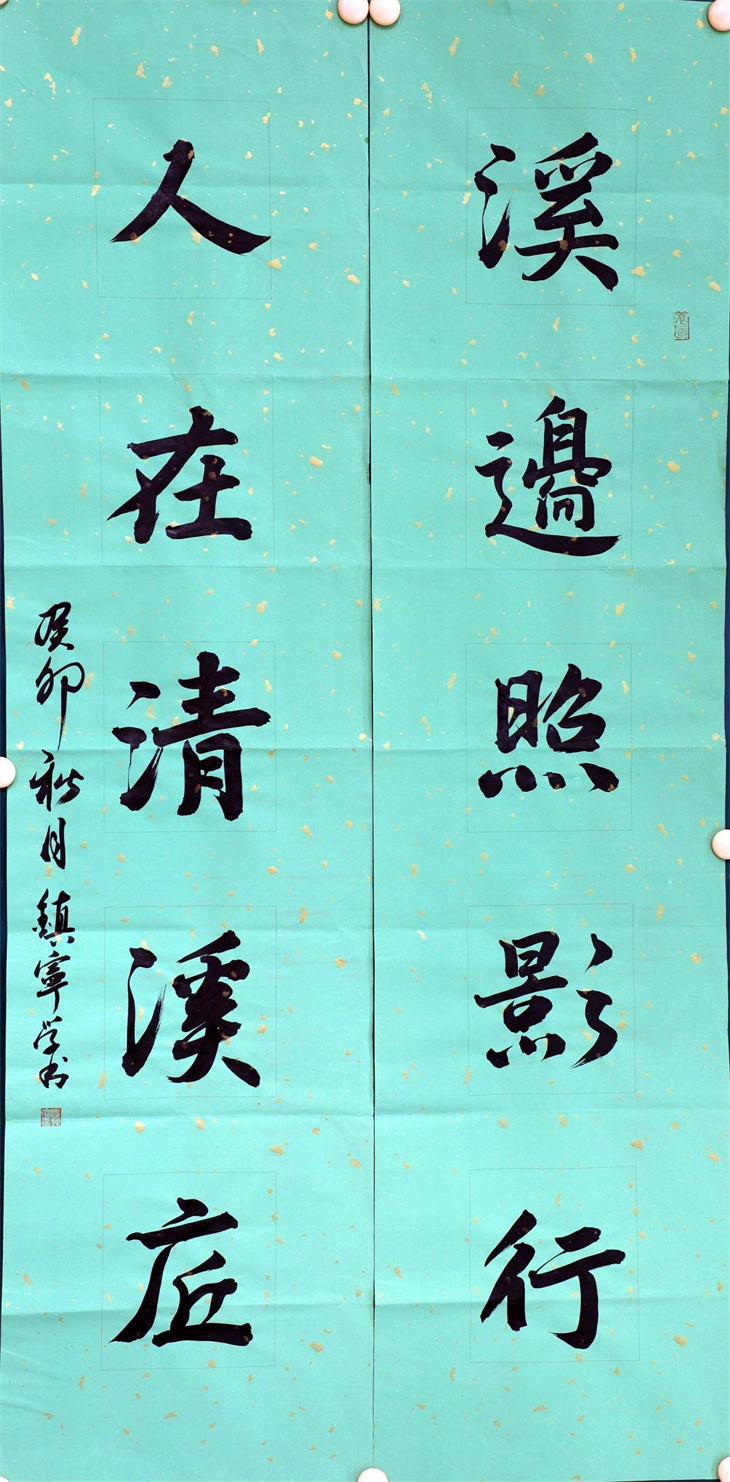 溪邊照影行
人在清溪底
癸卯秋月鎮寧学书